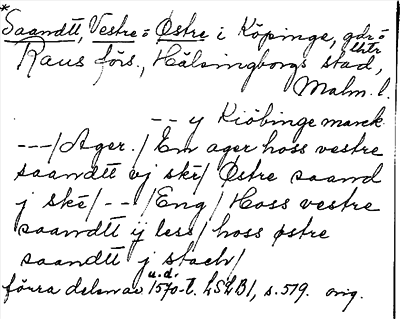 *Saandtt, Vestre = Östre i Köpinge, gdr =
lktr
Raus förs., Hälsingborgs stad,
Malm. l.
-- y Kiöbinge marck
---/Ager./ Em ager hoss vestre
saandtt vj ske/ Östre saand
j ske/ -- /Eng/ Hoss vestre
saandtt ij less/ hoss østre
saandtt j stack/
u.d.
förra delen av 1570-t. LSLB1, s. 519. orig.